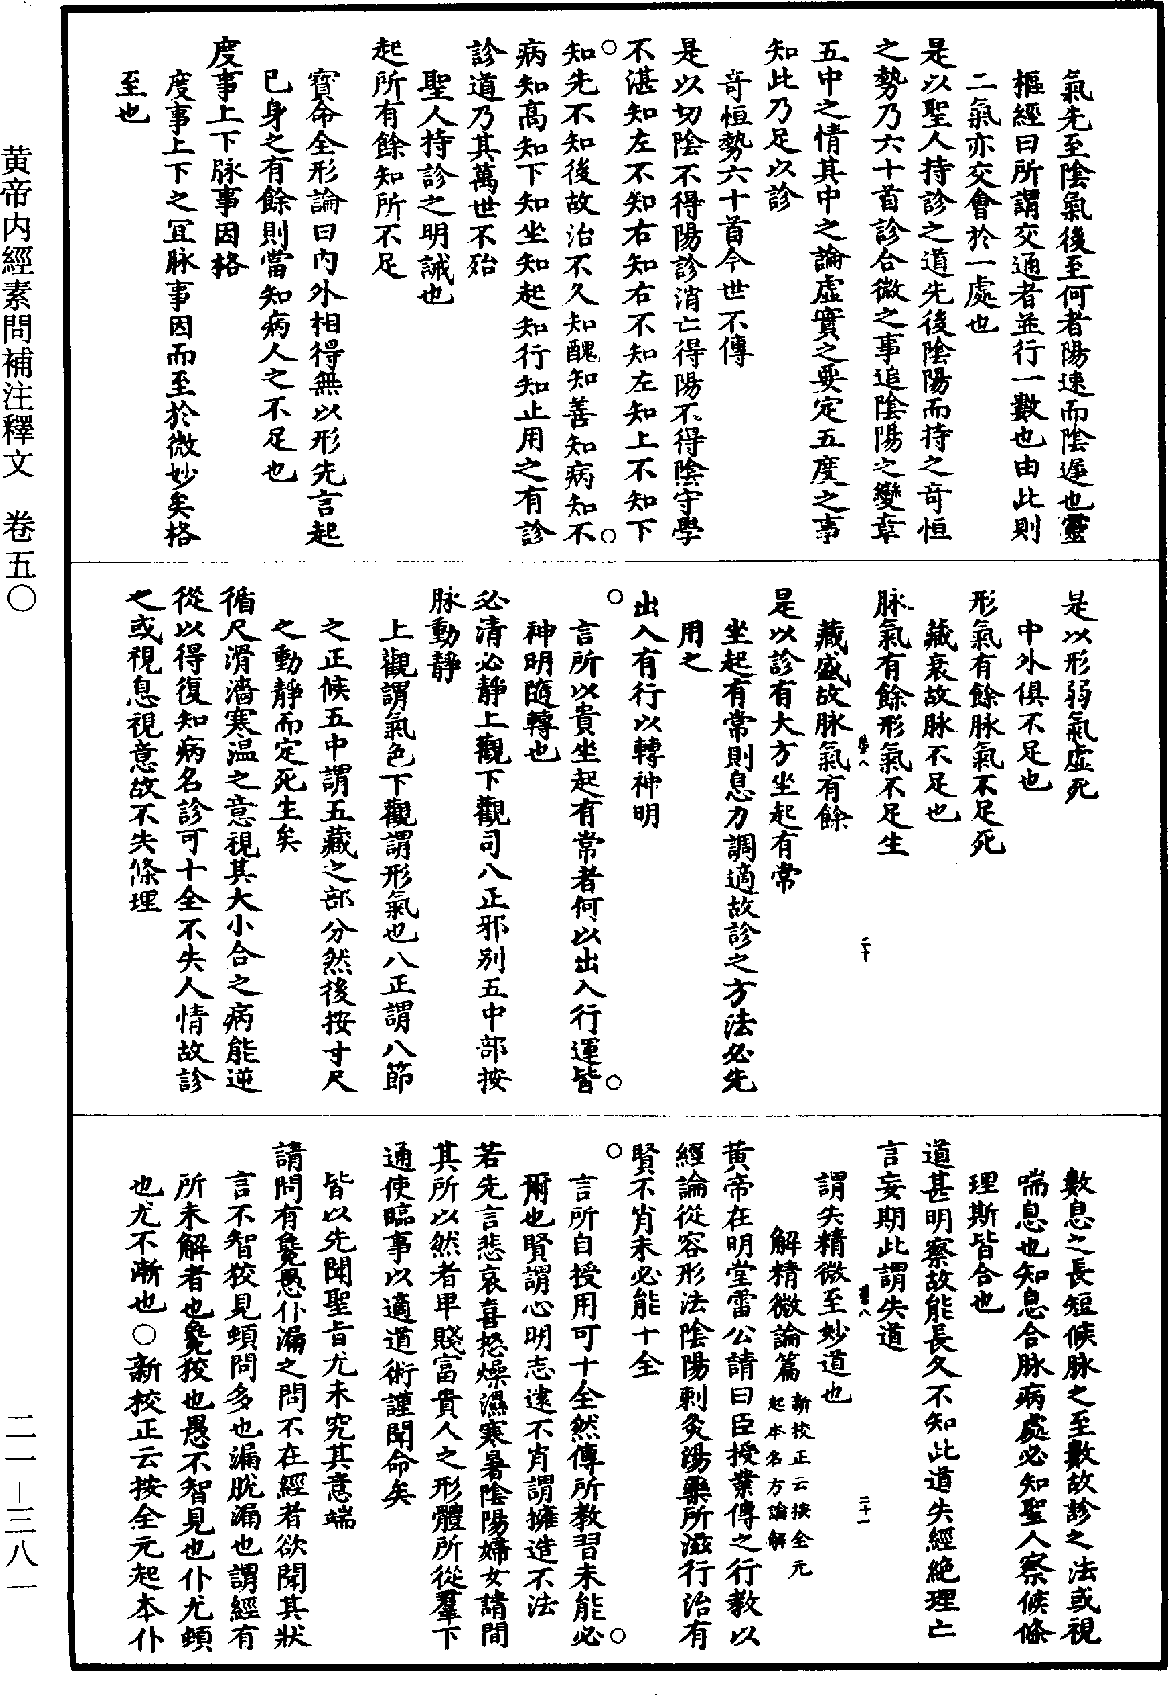 氣先至陰氣後至何者陽速而陰遲也靈
樞經曰所謂交通者並行一數也由此則
二氣亦交會於一處也
是以聖人持診之道先後陰陽而持之奇恒
之勢乃六十首診合微之事追陰陽之變章
五中之情其中之論虛實之要定五度之事
知此乃足以診
奇恒勢六十首今世不傳
是以切陰不得陽診消亡得陽不得陰守學
不湛知左不知右知右不知左知上不知下
知先不知後故治不久知醜知善知病知不
病知高知下知坐知起知行知止用之有診
診道乃其萬世不殆
聖人持診之明誡也
起所有餘知所不足
寶命全形論曰內外相得無以形先言起
已身之有餘則當知病人之不足也
度事上下脉事因格
度事上下之宜脉事因而至於微妙矣格
至也
是以形弱氣虛死
中外俱不足也
形氣有餘脉氣不足死
藏衰故脉不足也
脉氣有餘形氣不足生
藏盛故脉氣有餘
是以診有大方坐起有常
坐起有常則息力調適故診之方法必先
用之
出入有行以轉神明
言所以貴坐起有常者何以出入行運皆
神明隨轉也
必清必靜上觀下觀司八正邪別五中部按
脉動靜
上觀謂氣色下觀謂形氣也八正謂八節
之正候五中謂五藏之部分然後按寸尺
之動靜而定死生矣
循尺滑濇寒温之意視其大小合之病能逆
從以得復知病名診可十全不失人情故診
之或視息視意故不失條理
數息之長短候脉之至數故診之法或視
喘息也知息合脉病處必知聖人察候條
理斯皆合也
道甚明察故能長久不知此道失經絶理亡
言妄期此謂失道
謂失精微至妙道也
解精微論篇新校正云按全元起本名方論解
黃帝在明堂雷公請曰臣授業傳之行教以
經論從容形法陰陽刺灸湯藥所滋行治有
賢不肖未必能十全
言所自授用可十全然傳所教習未能必
爾也賢謂心明志遠不肖謂擁造不法
若先言悲哀喜怒燥濕寒暑陰陽婦女請問
其所以然者卑賤富貴人之形體所從羣下
通使臨事以適道術謹聞命矣
皆以先聞聖旨尤未究其意端
請問有毚愚仆漏之問不在經者欲聞其狀
言不智狡見頓問多也漏脱漏也謂經有
所未解者也毚狡也愚不智見也仆尤頓
也尤不漸也○新校正云按全元起本仆
黄帝内經素問補注釋文　卷五〇
二一—三八一